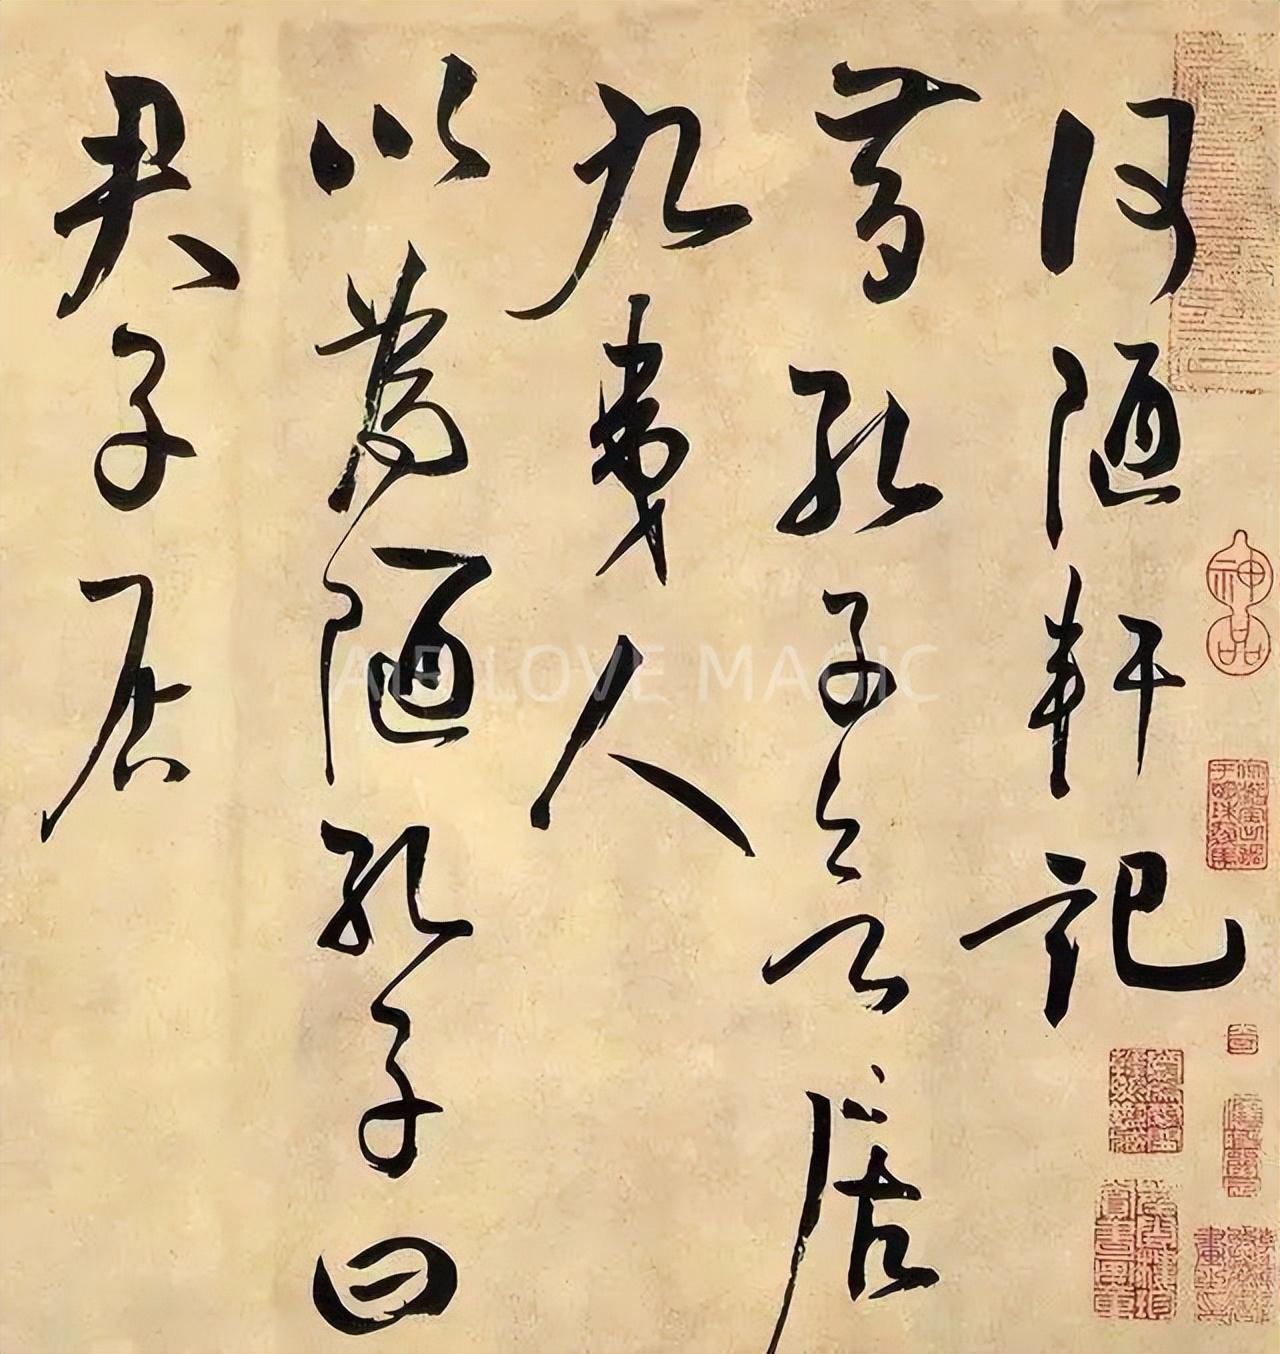 何陋軒記
昔孔子欲居
九夷人
以為陋孔子曰
君子居
神品
AIR LOVE MAGIC